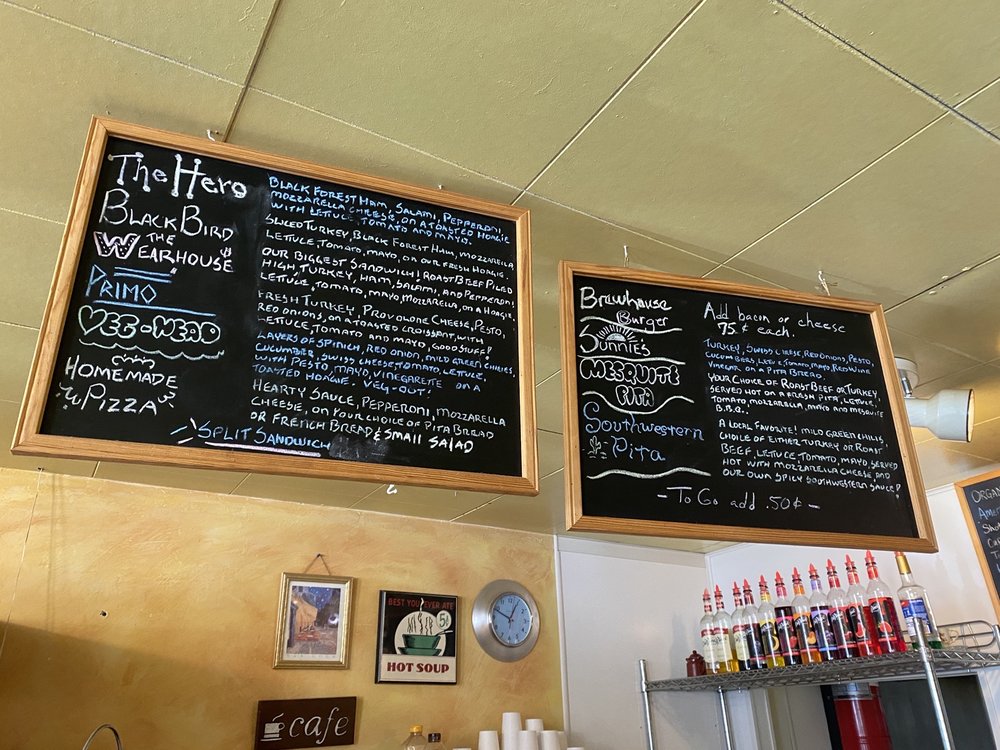 The Hero
BlackBird
THE
WEARHOUSE
PRIMO
VEG-HEAD
HOMEMADE
PIZZA
SPLIT SANDWICH
BLACK FOREST HAM, SALAMI, PEPPERONI,
MOZZARELLA CHEESE, ON A TOASTED HOAGIE
WITH LETUCE TOMATO AND MAYO.
SLICED TURKEY, BLACK FOREST HAM, MOZZARELLA
LETUCE, TOMATO, MAYO, ON OUR FRESH HOAGIE.
OUR BIGGEST SANDWICH! ROAST BEEF PILED
HIGH, TURKEY, HAM, SALAMI, AND PEPPERONI,
LETUCE, TOMATO, MAYO, MOZZARELLA, ON A HOAGIE.
FRESH TURKEY, PROVOLONE CHEESE, PESTO,
RED ONIONS, ON A TOASTED CROISSANT, WITH
LETUCE, TOMATO AND MAYO, GOOD STUFF!
LAYERS OF SPINICH, RED ONION, MILD GREEN CHILIES,
CUCUMBER, SWISS CHEESE, TOMATO, LETUCE,
WITH PESTO, MAYO, VINEGARETTE ON A
TOASTED HOAGIE. VEG-OUT!
HEARTY SAUCE, PEPPERONI, MOZZARELLA
CHEESE, ON YOUR CHOICE OF PITA BREAD
OR FRENCH BREAD & SMALL SALAD
Brewhouse
Burger
SUNNIES
MESQUITE
PITA
Southwestern
Pita
Add bacon or cheese
75¢ each.
TURKEY, SWISS CHEESE, RED ONIONS, PESTO,
CUCUMBERS, LETUCE, TOMATO, MAYO, RED WINE
VINEGAR ON A PITA BREAD.
YOUR CHOICE OF ROAST BEEF OR TURKEY,
SERVED HOT ON A FRESH PITA, LETUCE,
TOMATO MOZZARELLA, MAYO AND MESQUITE
B.B.Q..
A LOCAL FAVORITE! MILD GREEN CHILIS,
CHOICE OF EITHER TURKEY OR ROAST
BEEF, LETUCE, TOMATO, MAYO, SERVED
HOT WITH MOZZARELLA CHEESE AND
OUR OWN SPICY SOUTHWESTERN SAUCE!
- To Go add .50¢ -
BEST YOU EVER ATE
5¢
HOT SOUP
cafe